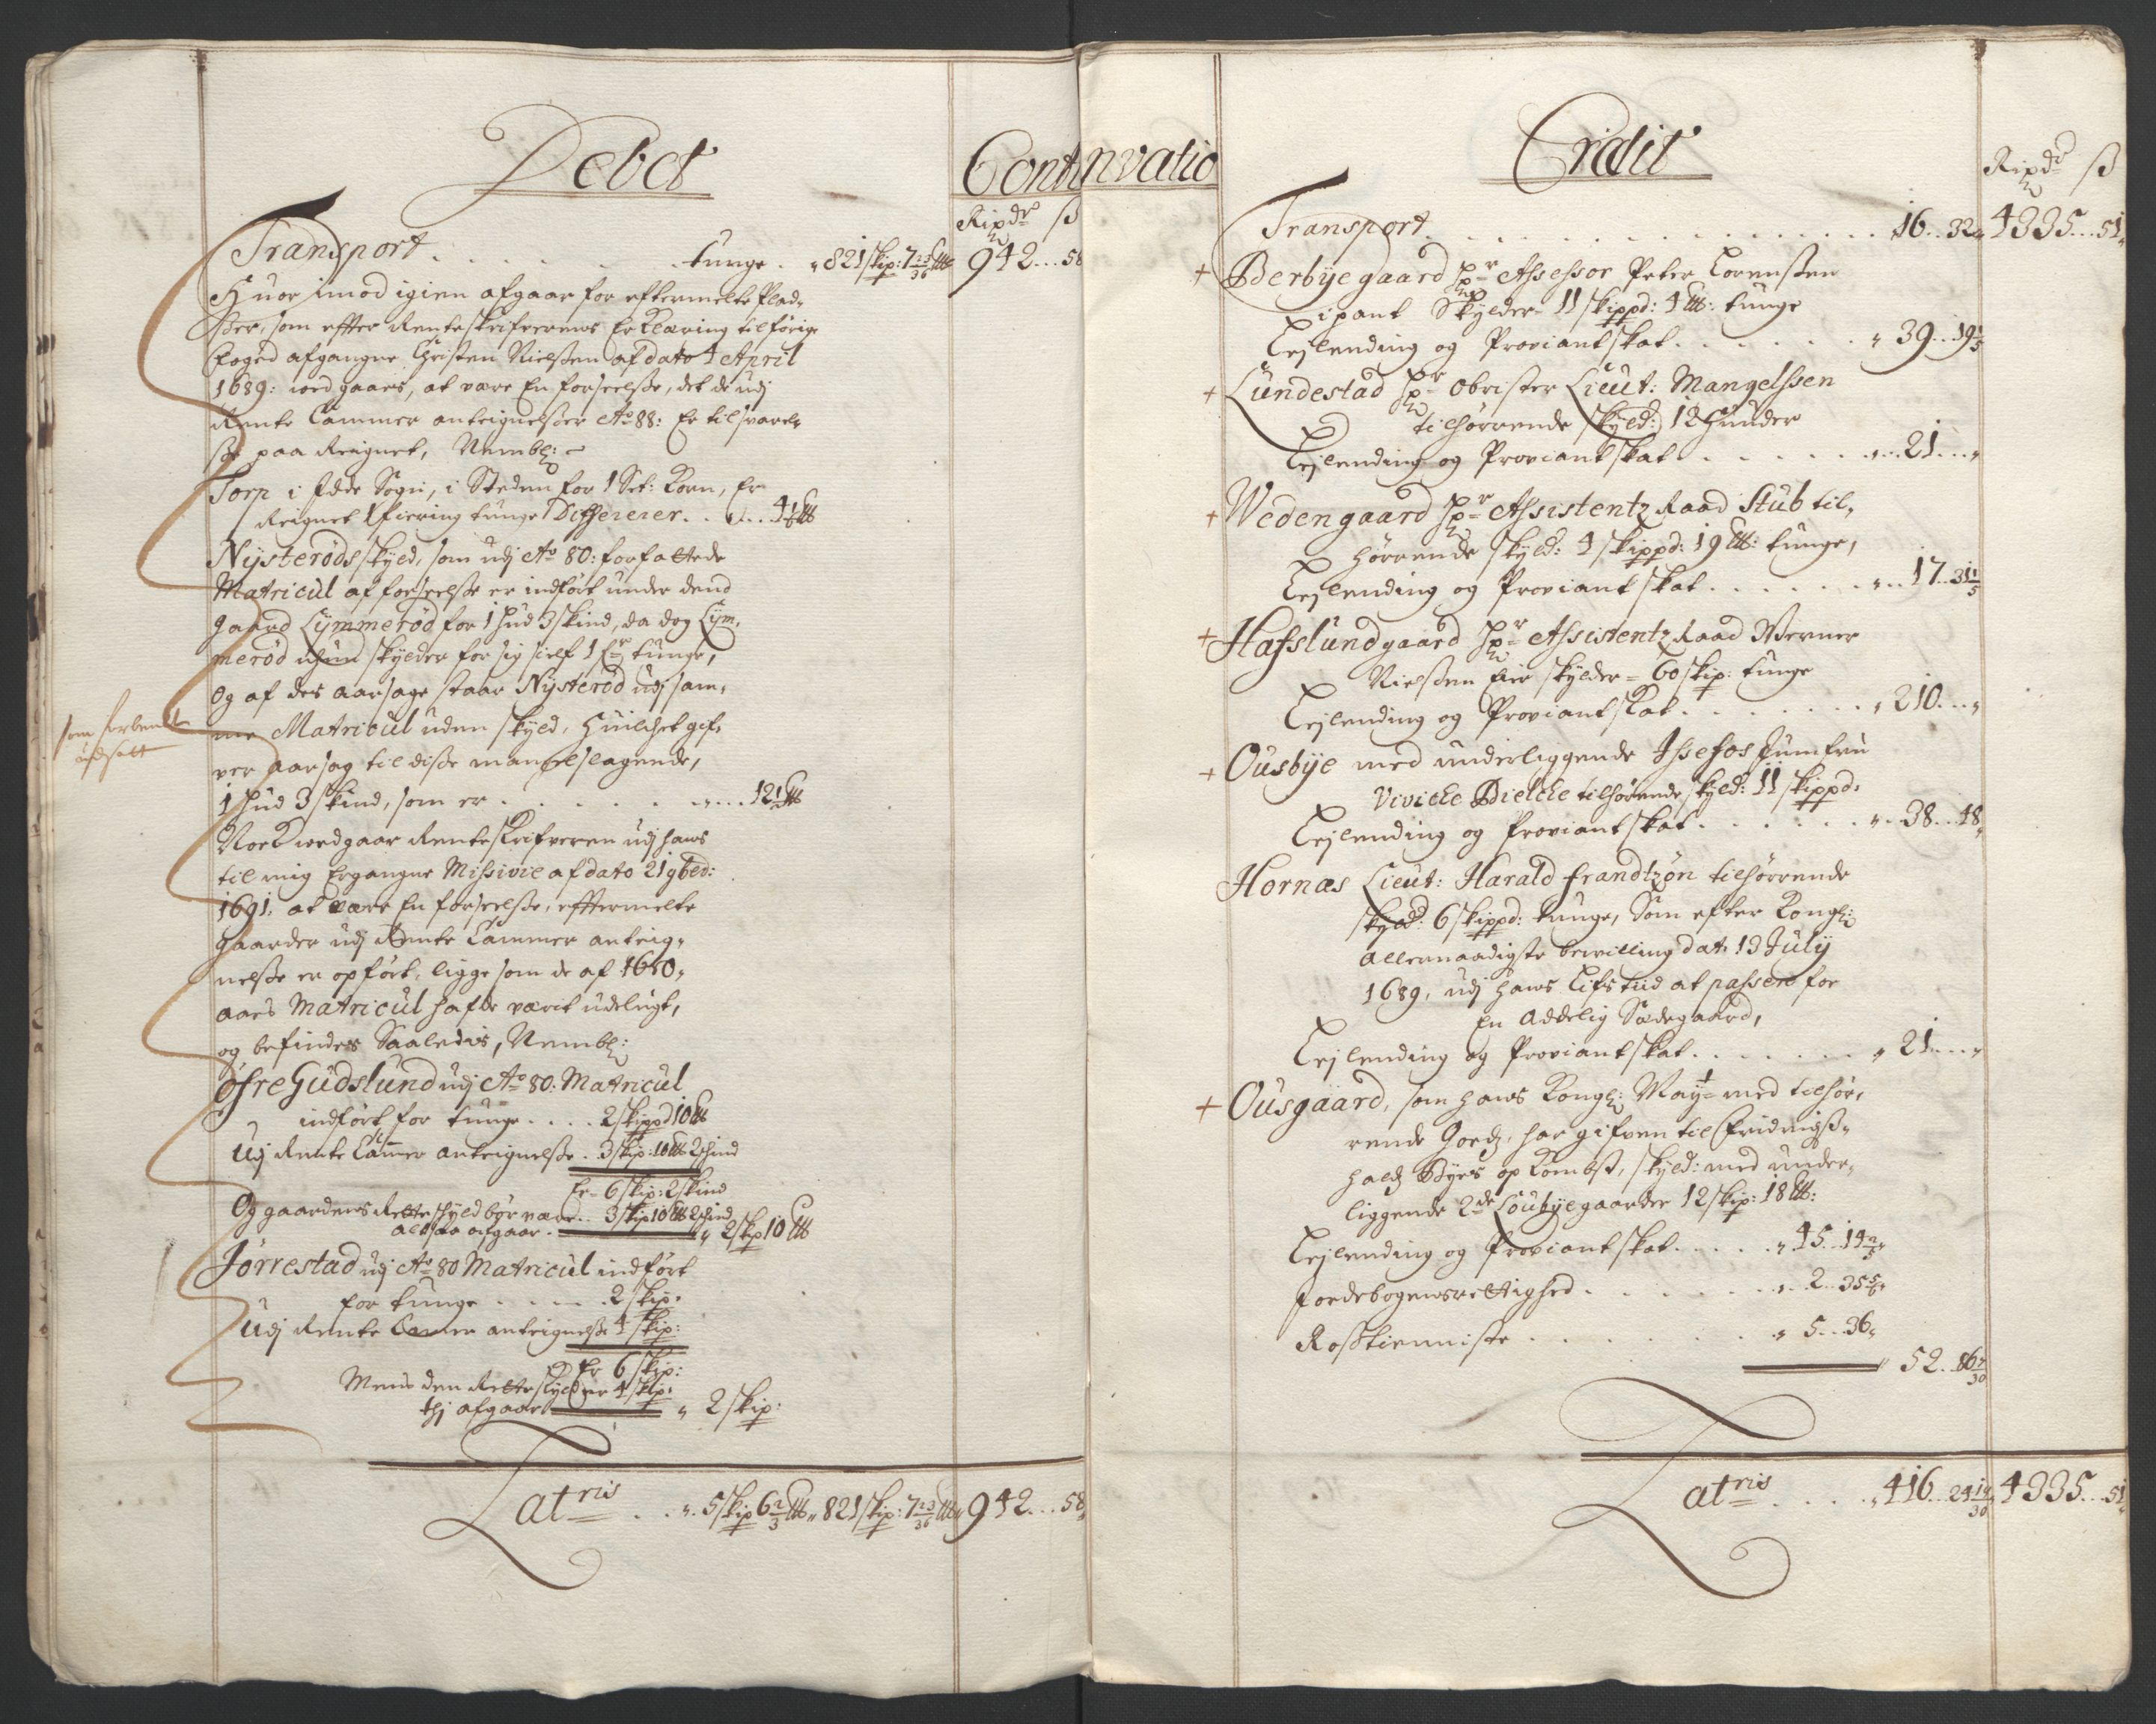 Debet
Continvatio
Ripdr ß
Transport . . . . . . . tunge . „ 821 skip: 7 23/36 L℔ 942 . . . 58
Huor imod igien afgaar for eftermelte Plad-
ser, som effter Renteskrifverens Erklæring til forige
Foged afgangne Christen Nielsen af dato 4 April
1689: vedgaars, at være En forseelsse, det de udj
Rente Cammer anteignelser Ao 88: Er til svarel-
se paa Reignet, Nembl:
Torp i Idde Sogn, i Steden for 1 Set: Korn, Er
Reignet 1 fiering tunge Differerer . . „ . . . 4 1/6 L℔
Nÿsterøds skyld, som udj Ao 80: forfattede
Matricul af forseelsse er indført under dend
gaard Lÿmmerød for 1 hud 3 skind, da dog Lÿm-
merød ichun skylder for sig sielf 1 Fr tunge,
Og af des aarsage staar Nÿsterød udj sam-
me Matricul uden skyld, Huilchet gif-
ver aarsag til disse mangelslagende,
1 Hud 3 skind, som er . . . . . . . „ . . . 12 1/2 L℔
som forben
udsatt
Nock vedgaar Renteskrifveren udj hans
til mig Ergangne Missivie af dato 21 9bed:
1691, at være En forseelsse, efftermelte
gaarder udj Rente Cammer anteig-
nelsse er opført, ligge som de af 1680-
aars Matricul hafde værit udelugt,
og befindes Saaledis, Nembl:
øfre Gudslund udj Ao 80. Matricul
indført for tunge . . . . 2 skippd 10 L℔
Udj Rente Cammer anteignelsse . 3 skip: 10 L℔ 2 skind
Er - 6 skip: 2 skind
Og gaardens Rette skyld bør være . . 3 skip 10 L℔ 2 skind
altsaa afgaar . „ „ 2 skip 10 L℔
Jorrestad udj Ao 80 Matricul indført
for tunge . . . . . 2 skip:
Udj Rente Camer anteignelsse 4 skip:
Er 6 skip:
Mens den Rette skyld er 4 skip:
thj afgaar „ 2 skip:
Latris . . „ . 5 skip 6 2/3 L℔ „ 821 skip: 7 23/36 L℔ „ 942 . . . 58
Credit
Ripdr ß
Transport . . . . . . . . . . 16 . . 32 „ 4335 . . . 51 „
+ Berbÿe gaard Hr Assessor Peter Lorensen
ipant Skÿlder - 11 skippd: 4 L℔: tunge
Leylending og Proviantskat . . . . . . . „ 39 . . 19 1/5
+ Lundestad Hr Obrister Lieut: Mangelssen
tilhørende skyld: 12 Huuder
Leylending og Proviantskat . . . . . . . „ . . 21 . . . „
+ Wedengaard Hr Assistentz Raad Stub til-
hørrende skyld: 4 skippd: 19 L℔: tunge,
Leylending og Proviantskat . . . . . . . „ . . 17 . . 31 1/5
+ Hafslund gaard Hr Assistentz Raad Werner
Nielsen Eier skylder = 60 skip: tunge
Leylending og Proviantskat . . . . . . . „ 210 . . . „
+ Ousbÿe med underliggende Issefos Jumfru
Vivicke Bielcke tilhørende skyld: 11 skippd:
Leylending og Proviantskat . . . . . . . „ . 38 . . 48 „
Hornæs Lieut: Harald frandtzøn tilhørrende
skyld: 6 skippd: tunge, Som efter Kongl:
allernaadigste bevilling dat: 13 Julÿ
1689, udj hans Lifs tid at passere for
En Addelig Sædegaard,
Leylending og Proviantskat . . . . . . . „ 21 . . . „
+ Ousgaard, som hans Kongl: Mayt med tilhør-
rende goedz, har gifven til Fridrichs-
hald Byes opkombst, skyld: med under-
liggende 2de Loubÿegaarder 12 skip: 18 L℔:
Leylending og Proviantskat . . . . . „ 45 . . 14 2/5 „
foedebogensrettighed . . . . . . . „ . . 2 . . 35 5/6 „
Rosstienniste . . . . . . . „ 5 . . 36 „
„ 52 . . 86 7/30
Latris . . . . „ 416 . . 24 19/30 4335 . . 51 „